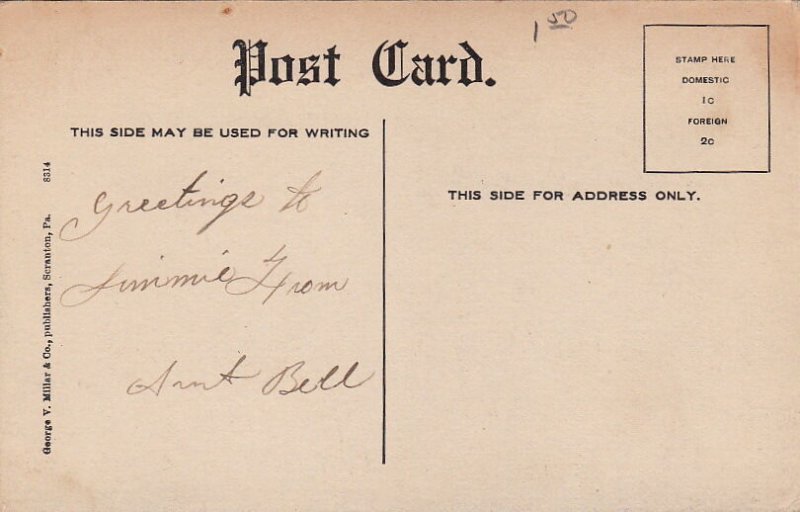 1 50
Post Card.
STAMP HERE
DOMESTIC
1c
FOREIGN
2c
THIS SIDE MAY BE USED FOR WRITING
THIS SIDE FOR ADDRESS ONLY.
Greetings to
Jimmie From
Aunt Bell
George V. Millar & Co., publishers, Scranton, Pa. 8314